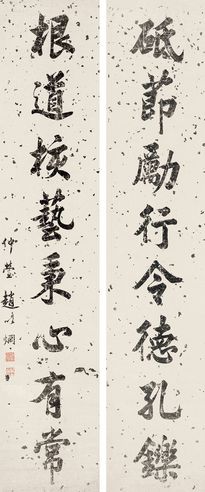 砥節勵行令德孔鑠
根道核藝秉心有常
仲瑩趙